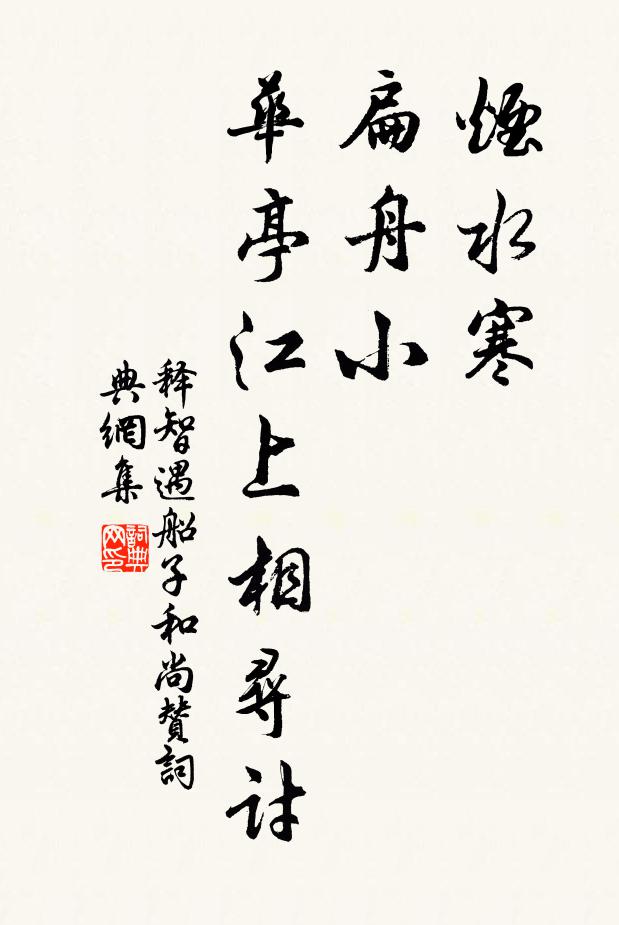 煙水寒
扁舟小
華亭江上相尋討
释智遇船子和尚贊詞
典網集
詞典
网印